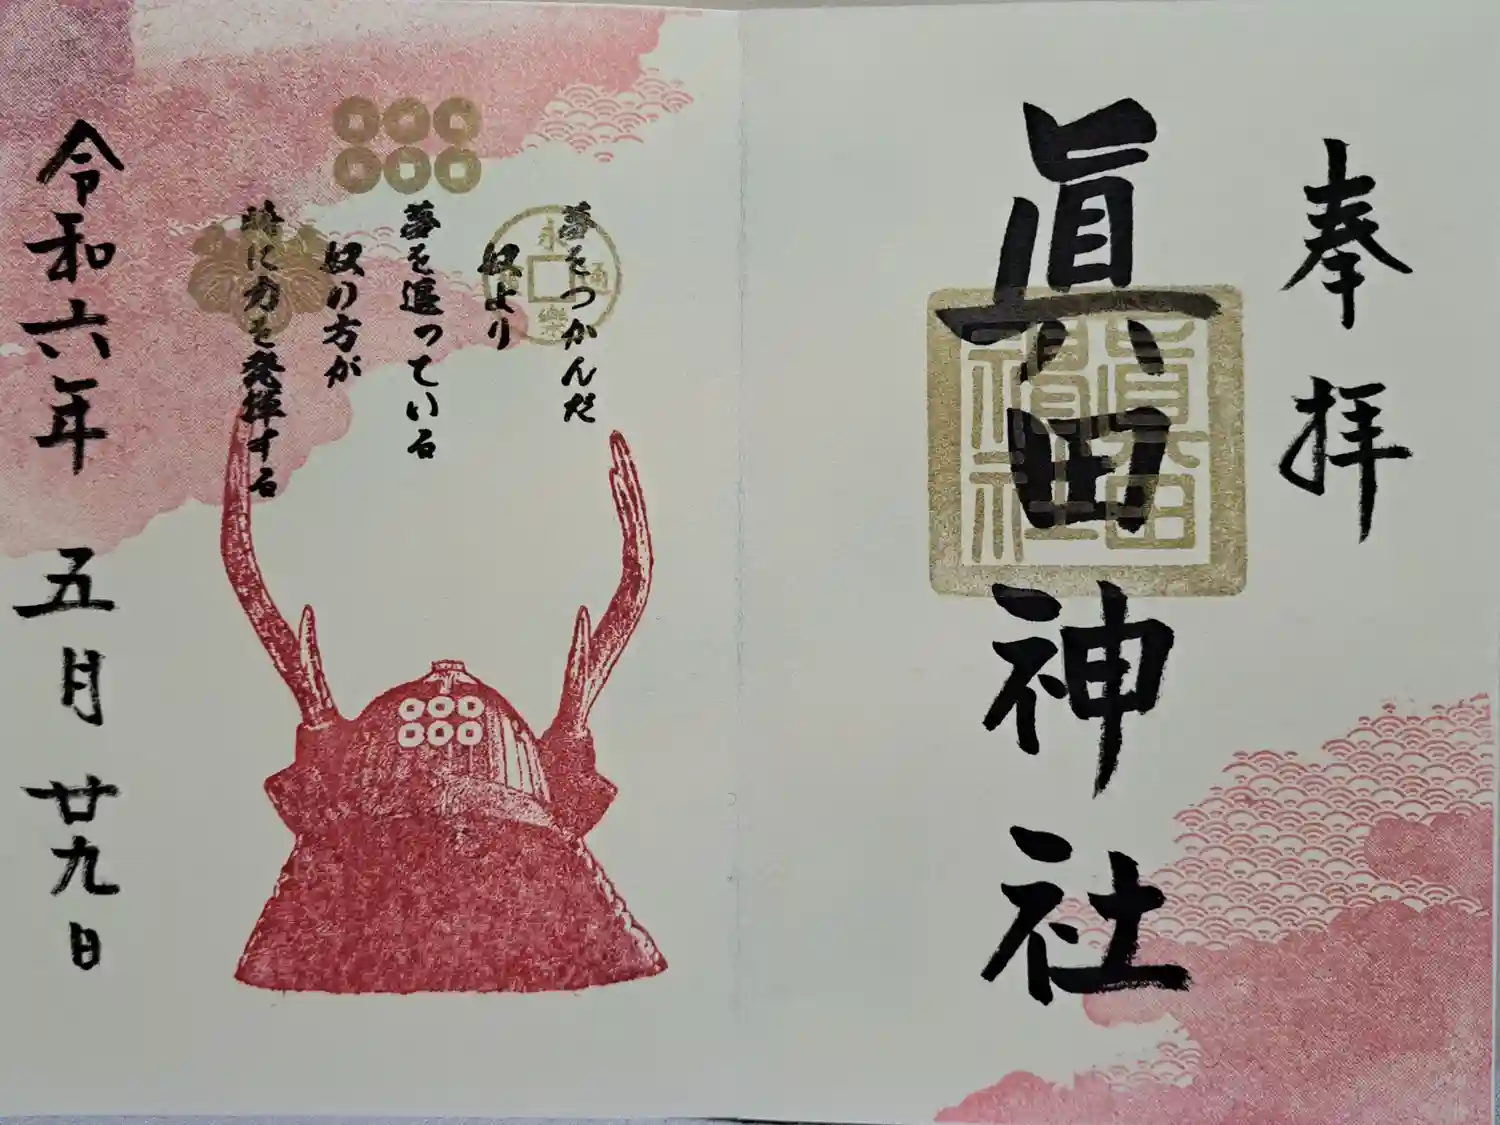 奉拝
眞田
神社
眞田
神社
夢をつかんだ
奴より
夢を追っている
奴の方が
時に力を発揮する
永
通
樂
令和六年
五月
廿九日